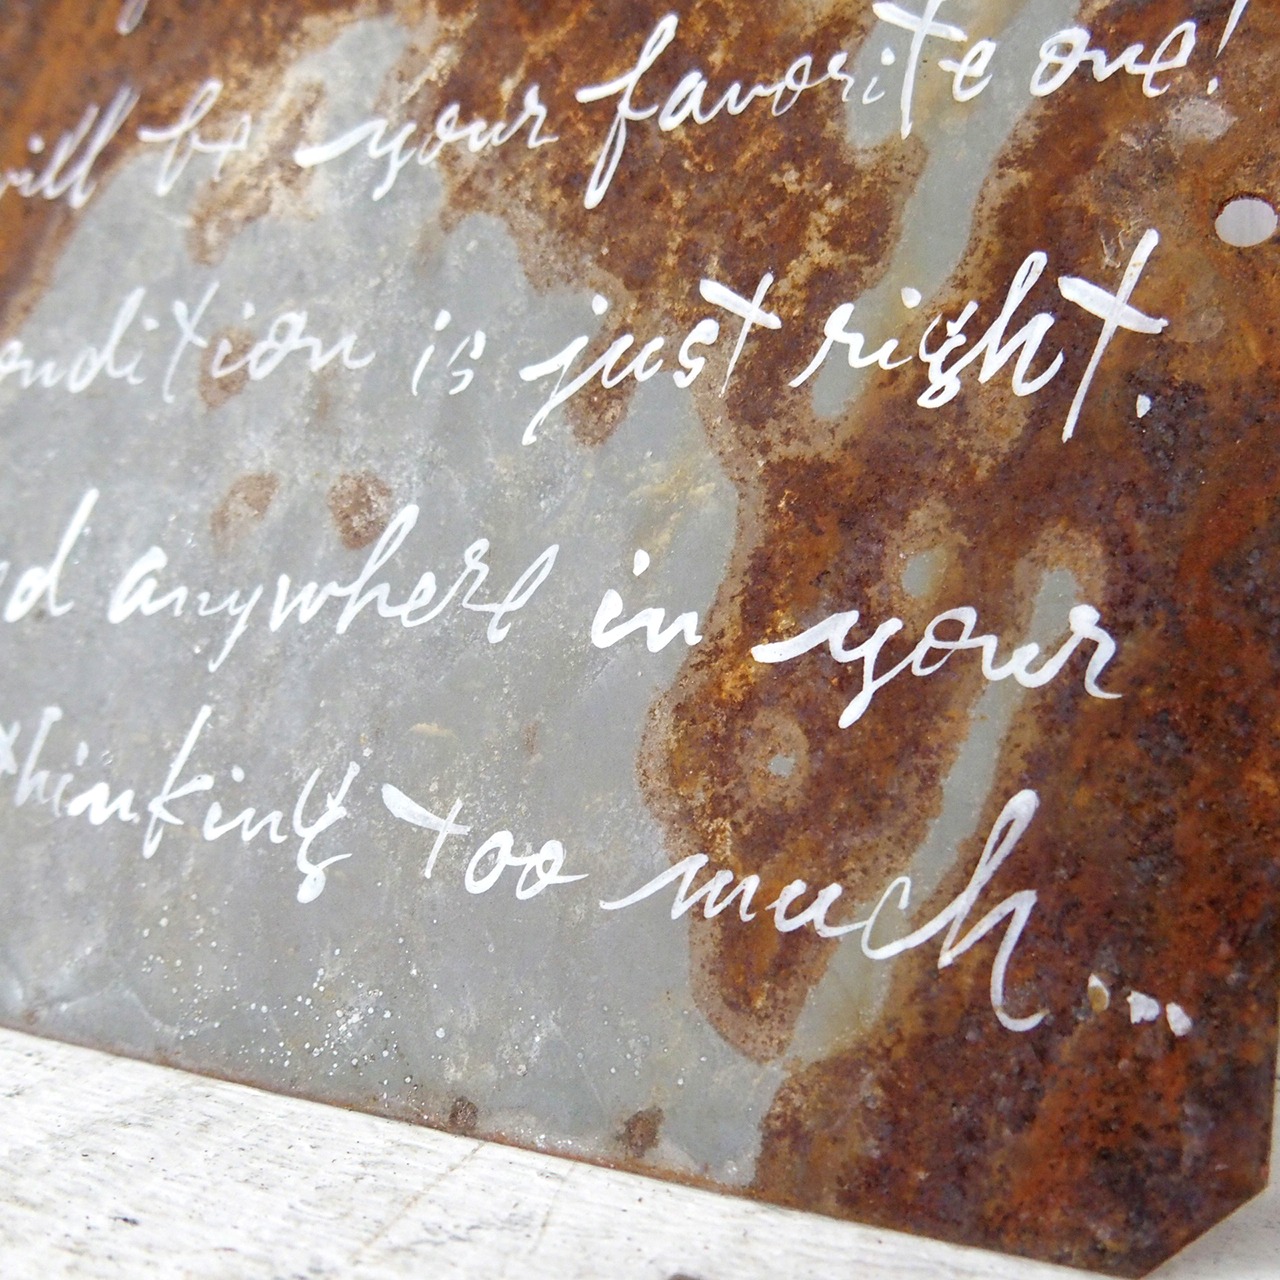 will be your favorite one!
condition is just right.
anywhere in your
thinking too much...